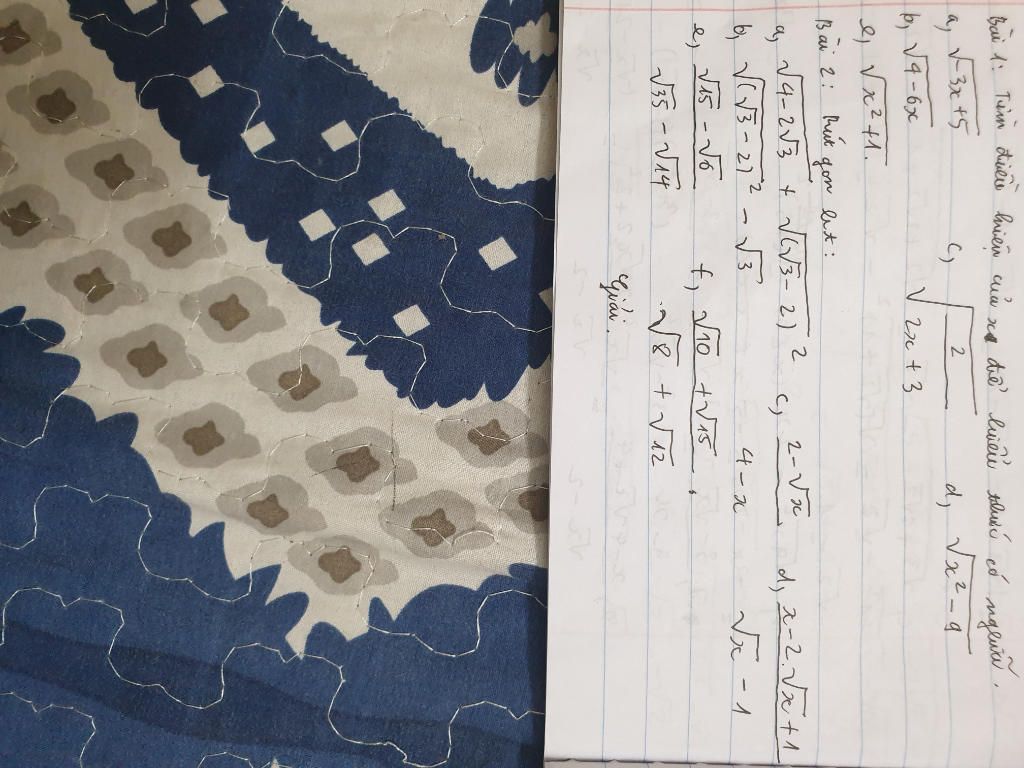 Bài 1: Tìm điều kiện của x để biểu thức có nghĩa.
a, √-3x+5 c, √(2/(2x+3)) d, √x²-9
b, √4-6x
e, √x²+1.
Bài 2: Rút gọn bt:
a, √4-2√3 + √(√3-2)² c, (2-√x)/(4-x) d, (x-2.√x+1)/(√x-1)
b, √(√3-2)² - √3
e, (√15-√6)/(√35-√14) f, (√10+√15)/(√8+√12).
Giải.